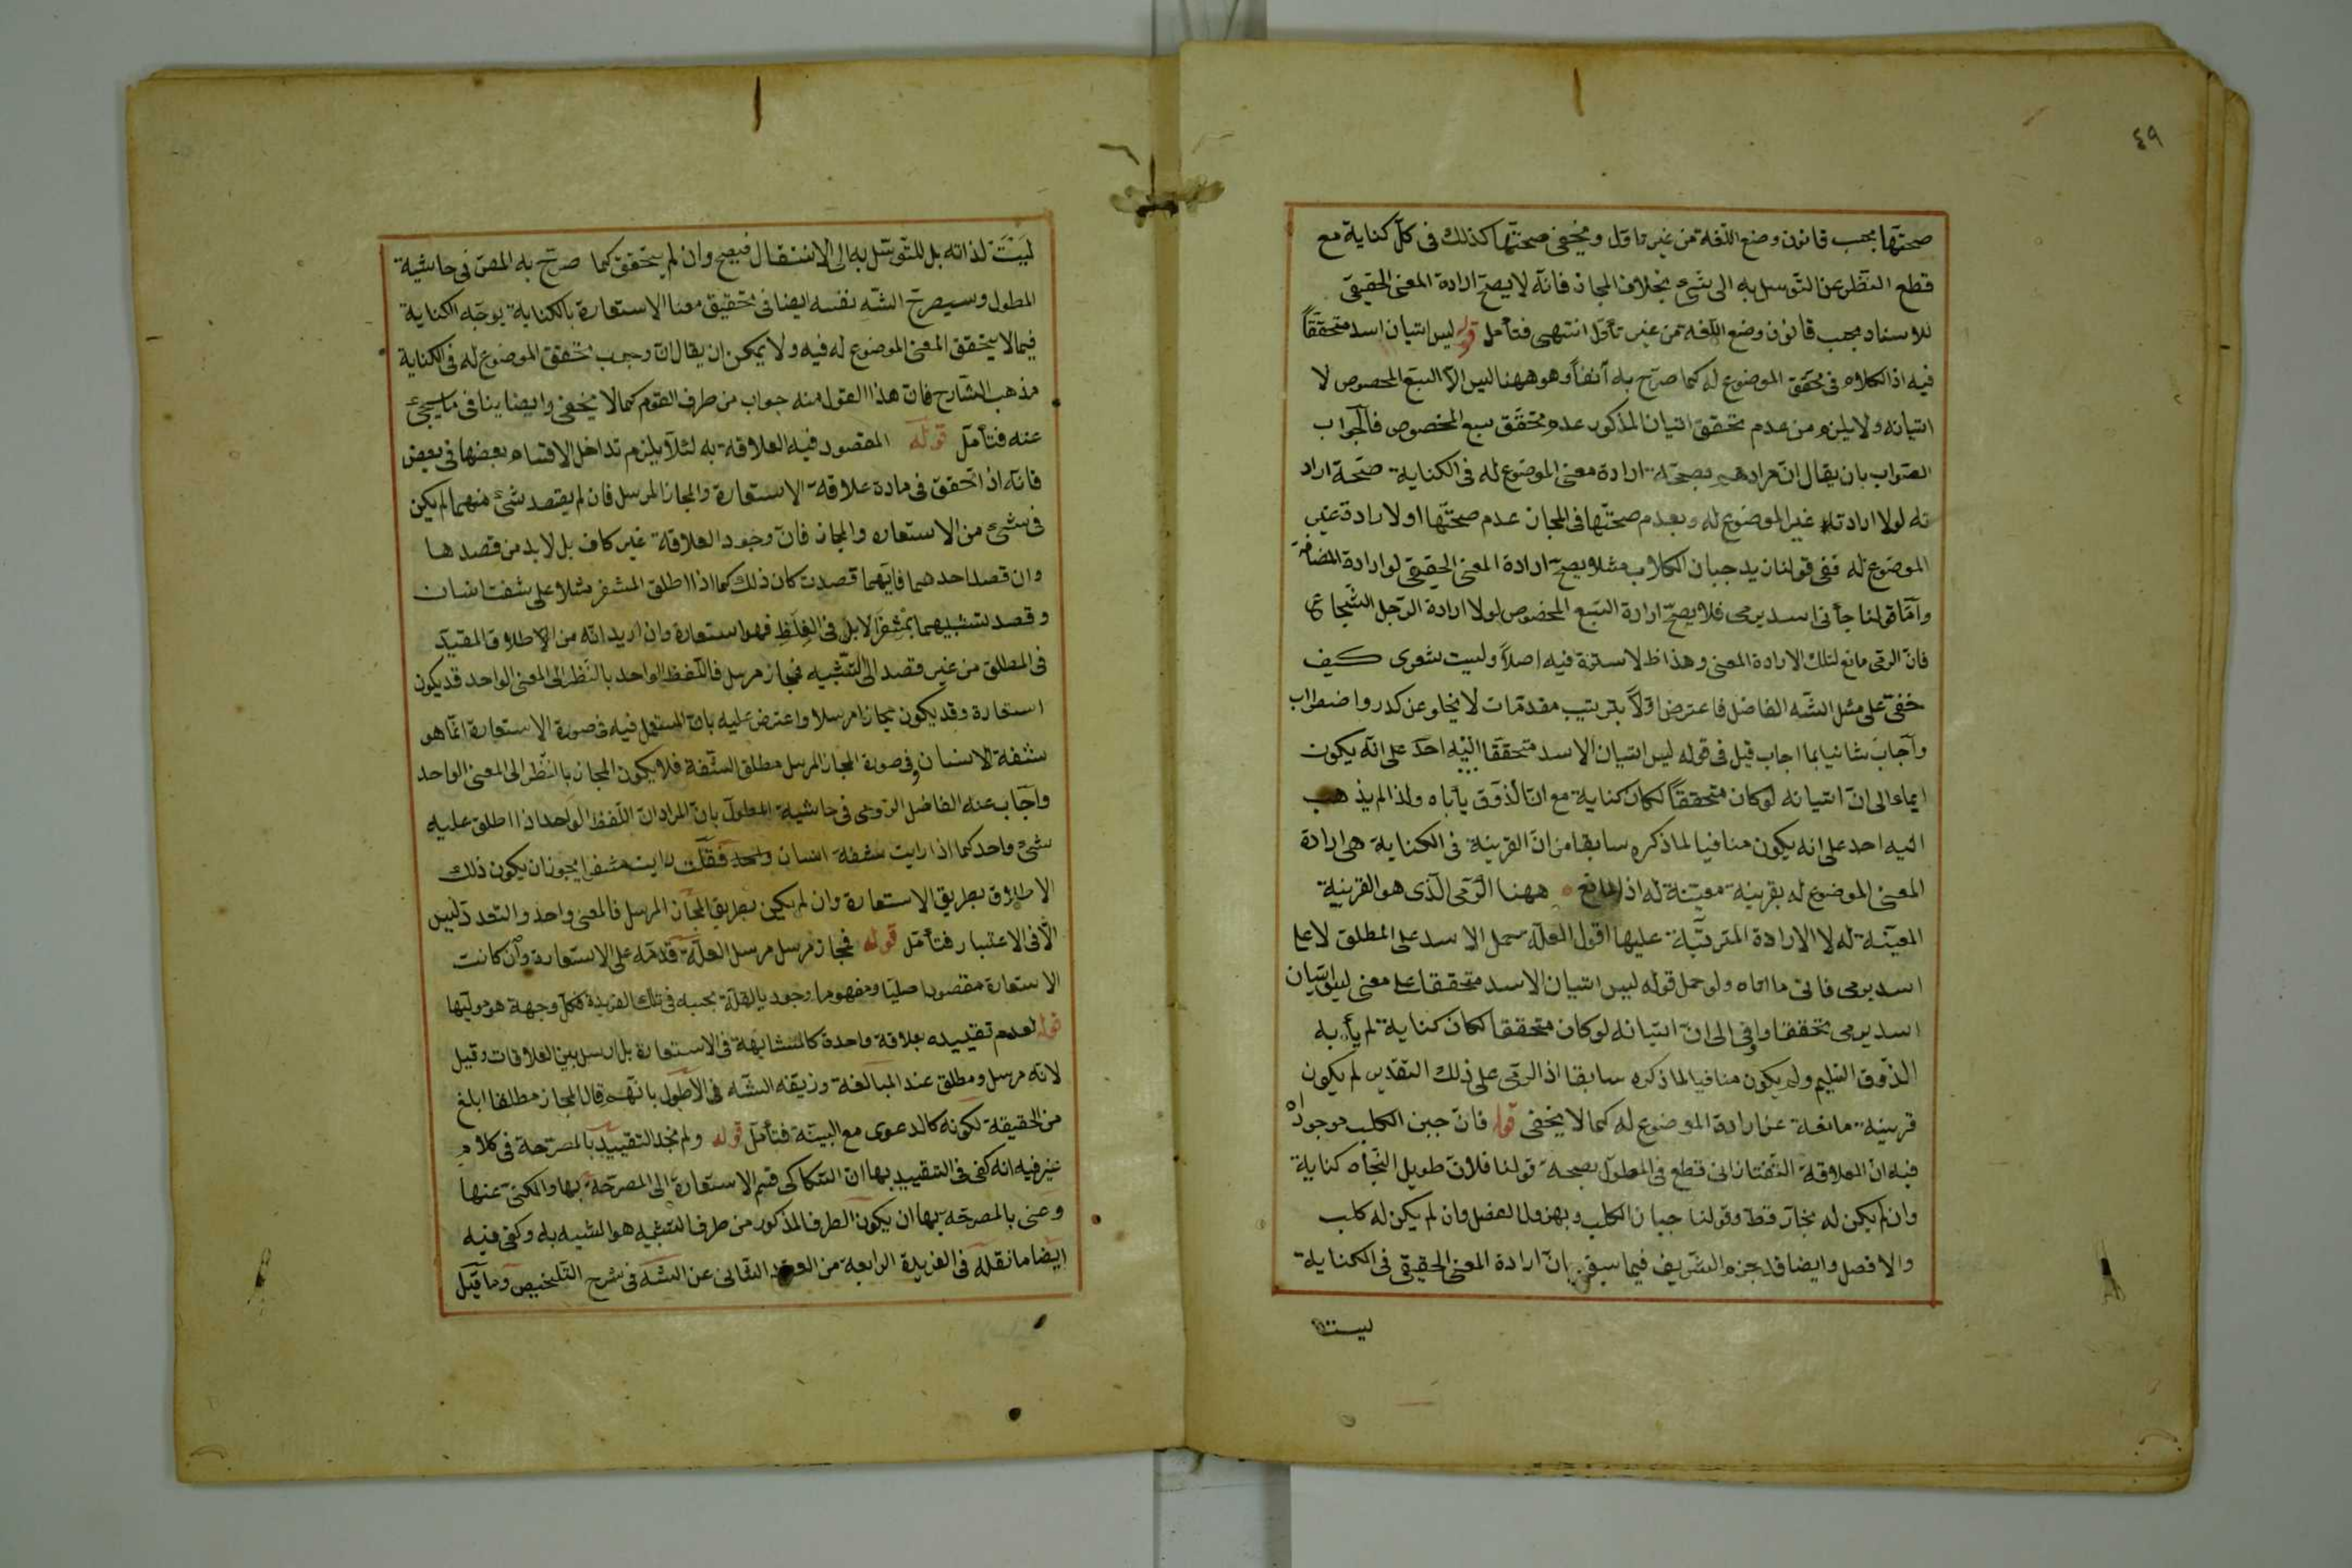 ٤٩
صحتها بحسب قانون وضع اللغة من غير تاول ويخفى صحتها كذلك فى كل كناية مع
قطع النظر عن التوسل به الى شىء بخلاف المجاز فانه لا يصح ارادة المعنى الحقيقى
للاسناد بحسب قانون وضع اللغة من غير تأول انتهى فتأمل قوله ليس اتيان اسد متحققاً
فيه اذ الكلام فى تحقق الموضوع له كما صرح به آنفاً وهو ههنا ليس الا السبع المخصوص لا
اتيانه ولا يلزم من عدم تحقق اتيان المذكور عدم تحقق سبع المخصوص فالجواب
الصواب بان يقال ان مرادهم بصحة ارادة معنى الموضوع له فى الكناية صحة اراد
ته لولا ارادته غير الموضوع له وبعدم صحتها فى المجاز عدم صحتها اولا رادة غير
الموضوع له ففى قولنا زيد جبان الكلاب مثلا يصح ارادة المعنى الحقيقى لو ارادة المضاف
وأما قولنا جأنى اسد يرمى فلا يصح ارادة السبع المخصوص لولا ارادة الرجل الشجاع
فان الرمى مانع لتلك الارادة المعنى وهذا ظ لا سترة فيه اصلاً وليت شعرى كيف
خفى على مثل الشه الفاضل فاعترض اولاً بترتيب مقدمات لا يخلو عن كدر واضطراب
وأجاب ثانيا بما اجاب قيل فى قوله ليس اتيان الاسد متحققا اليه احد على انه يكون
ايماء الى ان اتيانه لو كان متحققاً لكان كناية مع ان الذوق يأباه ولذا لم يذهب
اليه احد على انه يكون منافيا لما ذكره سابقا من ان القرينة فى الكناية هى ارادة
المعنى الموضوع له بقرينة معينة له اذ المانع ههنا الرمى الذى هو القرينة
المعينة له لا الارادة المترتبة عليها اقول العله حمل الاسد على المطلق لا على
اسد يرمى فاتى ما اتاه ولو حمل قوله ليس اتيان الاسد متحققا على معنى ليس اتيان
اسد يرمى تحققا وافى الى ان اتيانه لو كان متحققا لكان كناية لم يأب به
الذوق السليم ولم يكون منافيا لما ذكره سابقا اذ الرمى على ذلك التقدير لم يكون
قرينه مانعة عن ارادة الموضوع له كما لا يخفى قوله فان جبن الكلب موجود اه
فيه ان العلاقة التفتازانى قطع فى المطول بصحة قولنا فلان طويل النجاه كناية
وان لم يكن له نجاز قط وقولنا جبان الكلب وبهزول الفصل وان لم يكن له كلب
والا فصل وايضا قد جزم الشريف فيما سبق بان ارادة المعنى الحقيقى فى الكناية
ليست
ليست لذاته بل للتوسل به الى الانتقال فيصح وان لم يتحقق كما صرح به المص فى حاشية
المطول وسيصرح الشه نفسه ايضا فى تحقيق معنا الاستعارة بالكناية يوجه الكناية
فيما لا يتحقق المعنى الموضوع له فيه ولا يمكن ان يقال ان وجوب تحقق الموضوع له فى الكناية
مذهب الشارح فان هذا القول منه جواب من طرف القوم كما لا يخفى وايضا ينافى ما سيجئ
عنه فتأمل قوله المقصود فيه العلاقة به لئلا يلزم تداخل الاقسام بعضها فى بعض
فانه اذ اتحقق فى مادة علاقة الاستعارة والمجاز المرسل فان لم يقصد شئ منهما لم يكن
فى شئ من الاستعاره والمجاز فان وجود العلاقة غير كاف بل لا بد من قصدها
وان قصد احدهما فايهما قصدت كان ذلك كما اذا اطلق المشفر مثلا على شفت انسان
وقصد تشبيهما بمشفر الابل فى الغلظ فهو استعارة وان اريد انه من الاطلاق المقيد
فى المطلق من غير قصد الى التشبيه فمجاز مرسل فاللفظ الواحد بالنظر الى المعنى الواحد قد يكون
استعارة وقد يكون مجازا مرسلا واعترض عليه بان المستعمل فيه فى صورة الاستعارة انما هو
شفة الانسان وفى صورة المجاز المرسل مطلق الشفة فلا يكون المجاز بالنظر الى المعنى الواحد
واجاب عنه الفاضل الرومى فى حاشية المطول بان المراد ان اللفظ الواحد اذا اطلق عليه
شىء واحد كما اذا رايت شفة انسان واحد فقلت رايت مشفرا يجوز ان يكون ذلك
الاطلاق بطريق الاستعارة وان لم يكن بطريق المجاز المرسل فالمعنى واحد والتعدد ليس
الا فى الاعتبار فتأمل قوله فمجاز مرسل مرسل العله قدمه على الاستعارة وان كانت
الاستعارة مقصودا صليا ومفهوما وجوديا لقلة بحسبه فى تلك الفريدة فكل وجهة هو موليها
قوله لعدم تقييده بعلاقة واحدة كالمشابهة فى الاستعارة بل ارسل بين العلاقات وقيل
لانه مرسل ومطلق عند المبالغة وزيفه الشه فى الاطول بانهم قال المجاز مطلقا ابلغ
من الحقيقة لكونه كالدعوى مع البينة فتأمل قوله ولم نجد التقييد بالمصرحة فى كلام
غيره فيه انه كفى فى التقييد بها ان السكاكى قسم الاستعارة الى المصرحة بها والمكنى عنها
وعنى بالمصرحه بها ان يكون الطرف المذكور من طرف التشبيه هو المشبه به وكفى فيه
ايضا ما نقله فى الفريدة الرابعة من العقد الثانى عن الشه فى شرح التلخيص وما قيل